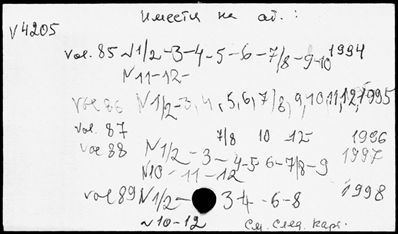 Имеется на аб.:
V4205
vol. 85 N1/2-3-4-5-6-7/8-9-10 1994
N11-12-
vol 86 N1/2-3,4,5,6,7/8,9,10,11,12,1995
vol. 87 7/8 10 12 1996
vol 88 N1/2-3-4-5-6-7/8-9 1997
N10-11-12
vol 89 N1/2- 34-6-8 1998
N10-12 См. след. карт.